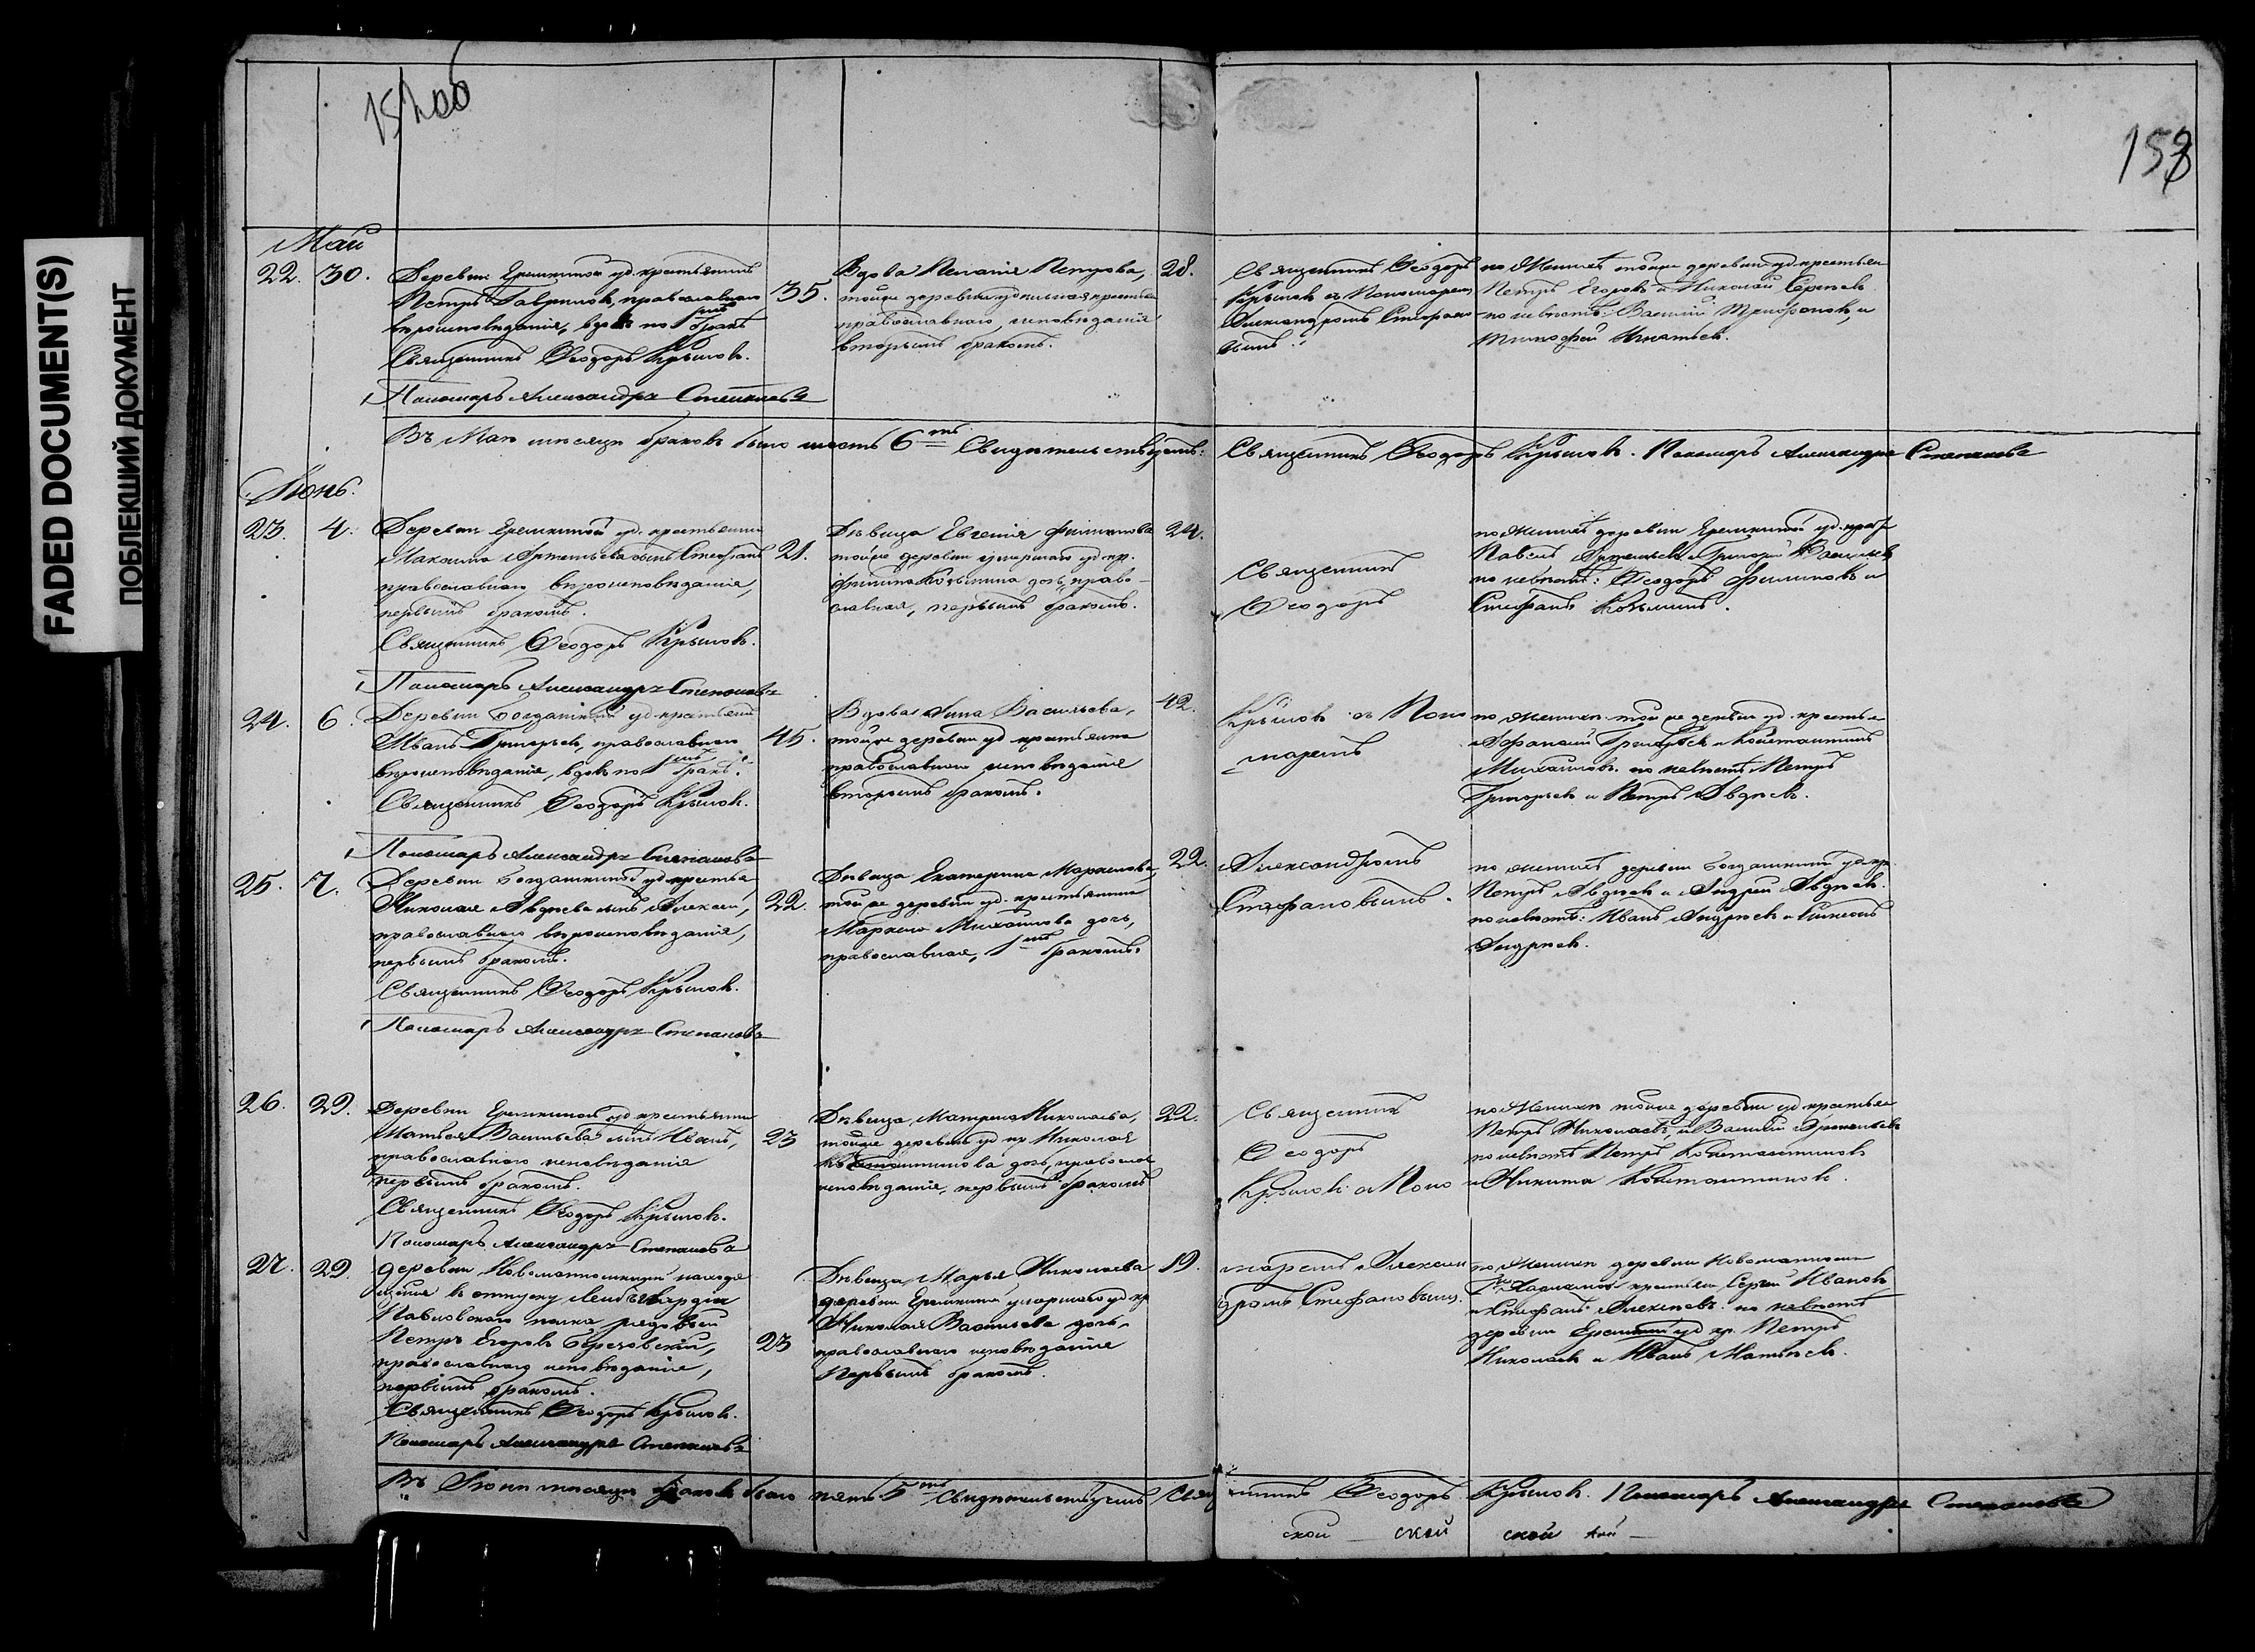 FADED DOCUMENT(S)
ПОБЛЕКШИЙ ДОКУМЕНТ
158
Май
22. 30.
Деревни Еремкиной уд. крестьянинъ
Петръ Гавриловъ, православнаго
вѣроисповѣданія, вдовъ по 1мъ бракѣ
Священникъ Ѳеодоръ Крыловъ.
Пономарь Александръ Степановъ
35.
Вдова Пелагія Петрова,
тойже деревни удѣльная крестьян
православнаго исповѣданія
вторымъ бракомъ.
28.
Священникъ Ѳеодоръ
Крыловъ съ Пономаремъ
Александромъ Стефано-
вымъ.
по женихѣ тойже деревни уд. крестьян
Петръ Егоровъ и Николай Сергѣевъ
по невѣстѣ: Василій Трифоновъ, и
Тимофей Игнатьевъ.
Въ Маѣ мѣсяцѣ браковъ было шесть 6ть Свидѣтельствуетъ: Священникъ Ѳеодоръ Крыловъ. Пономарь Александръ Степановъ
Іюнь.
23. 4.
Деревни Еремкиной уд. крестьянина
Максима Артемьева сынъ Стефанъ
православнаго вѣроисповѣданія,
первымъ бракомъ.
Священникъ Ѳеодоръ Крыловъ.
Пономарь Александръ Степановъ
21.
Дѣвица Евгенія Филипова
тойже деревни умершаго уд. кр.
Филипа Козьмина дочь, право-
славная, первымъ бракомъ.
24.
Священникъ
Ѳеодоръ
по женихѣ деревни Еремкиной уд. крест
Павелъ Артемьевъ и Григорій Васильевъ
по невѣстѣ: Ѳеодоръ Филиповъ и
Стефанъ Козьминъ.
24. 6.
Деревни Богдашкиной уд. крестьянинъ
Иванъ Григорьевъ, православнаго
вѣроисповѣданія, вдовъ по 1мъ бракѣ.
Священникъ Ѳеодоръ Крыловъ.
Пономарь Александръ Степановъ
45.
Вдова Анна Васильева,
тойже деревни уд. крестьянка
православнаго исповѣданія
вторымъ бракомъ.
42.
Крыловъ съ Поно
маремъ
по женихѣ тойже деревни уд. крестьян
Афанасій Григорьевъ и Константинъ
Михайловъ. по невѣстѣ Петръ
Григорьевъ и Петръ Авдѣевъ.
25. 7.
Деревни Богдашкиной уд. крестьян
Николая Авдѣева сынъ Алексѣй,
православнаго вѣроисповѣданія,
первымъ бракомъ.
Священникъ Ѳеодоръ Крыловъ.
Пономарь Александръ Степановъ
22.
Дѣвица Екатерина Маркелова
тойже деревни уд. крестьянина
Маркела Михайлова дочь,
православная, 1мъ бракомъ.
22.
Александромъ
Стефановымъ.
по женихѣ деревни Богдашкиной уд. кр.
Петръ Авдѣевъ и Андрей Авдѣевъ.
по невѣстѣ: Иванъ Андреевъ и
Андреевъ.
26. 29.
Деревни Еремкиной уд. крестьянина
Матвея Васильева сынъ Иванъ,
православнаго исповѣданія
первымъ бракомъ.
Священникъ Ѳеодоръ Крыловъ.
Пономарь Александръ Степановъ
23
Дѣвица Матрена Николаева,
тойже деревни уд. кр. Николая
Константинова дочь, православ
исповѣданія, первымъ бракомъ
22.
Священникъ
Ѳеодоръ
Крыловъ съ Поно
по женихѣ тойже деревни уд. крестьян
Петръ Николаевъ, и Василій
по невѣстѣ Петръ Константиновъ
и Никита Константиновъ.
27. 29.
деревни находя
щійся въ отпуску Лейбъ Гвардіи
Павловскаго полка рядовый
Петръ Егоровъ Березовскій,
православнаго исповѣданія,
первымъ бракомъ.
Священникъ Ѳеодоръ Крыловъ.
Пономарь Александръ Степановъ
23
Дѣвица Марья Николаева
деревни Еремкиной умершаго уд. кр
Николая Васильева дочь,
православнаго исповѣданія
Первымъ бракомъ.
19.
маремъ Алексан
дромъ Стефановымъ.
по женихѣ деревни
крестьяне, Сергѣй Ивановъ
и Стефанъ Алексѣевъ. по невѣстѣ
деревни Еремкиной уд. кр. Петръ
Николаевъ и Иванъ Матвѣевъ.
Въ Іюнѣ мѣсяцѣ браковъ было пять 5ть Свидѣтельствуетъ Свящ нникъ Ѳеодоръ Крыловъ. Пономарь Александръ Степановъ
ской ской ской